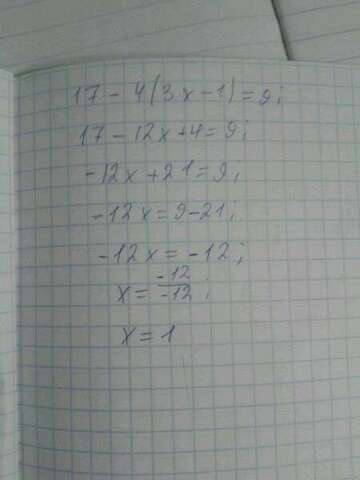 17 - 4(3x - 1) = 9;
17 - 12x + 4 = 9;
-12x + 21 = 9;
-12x = 9 - 21;
-12x = -12;
x = -12/-12;
x = 1